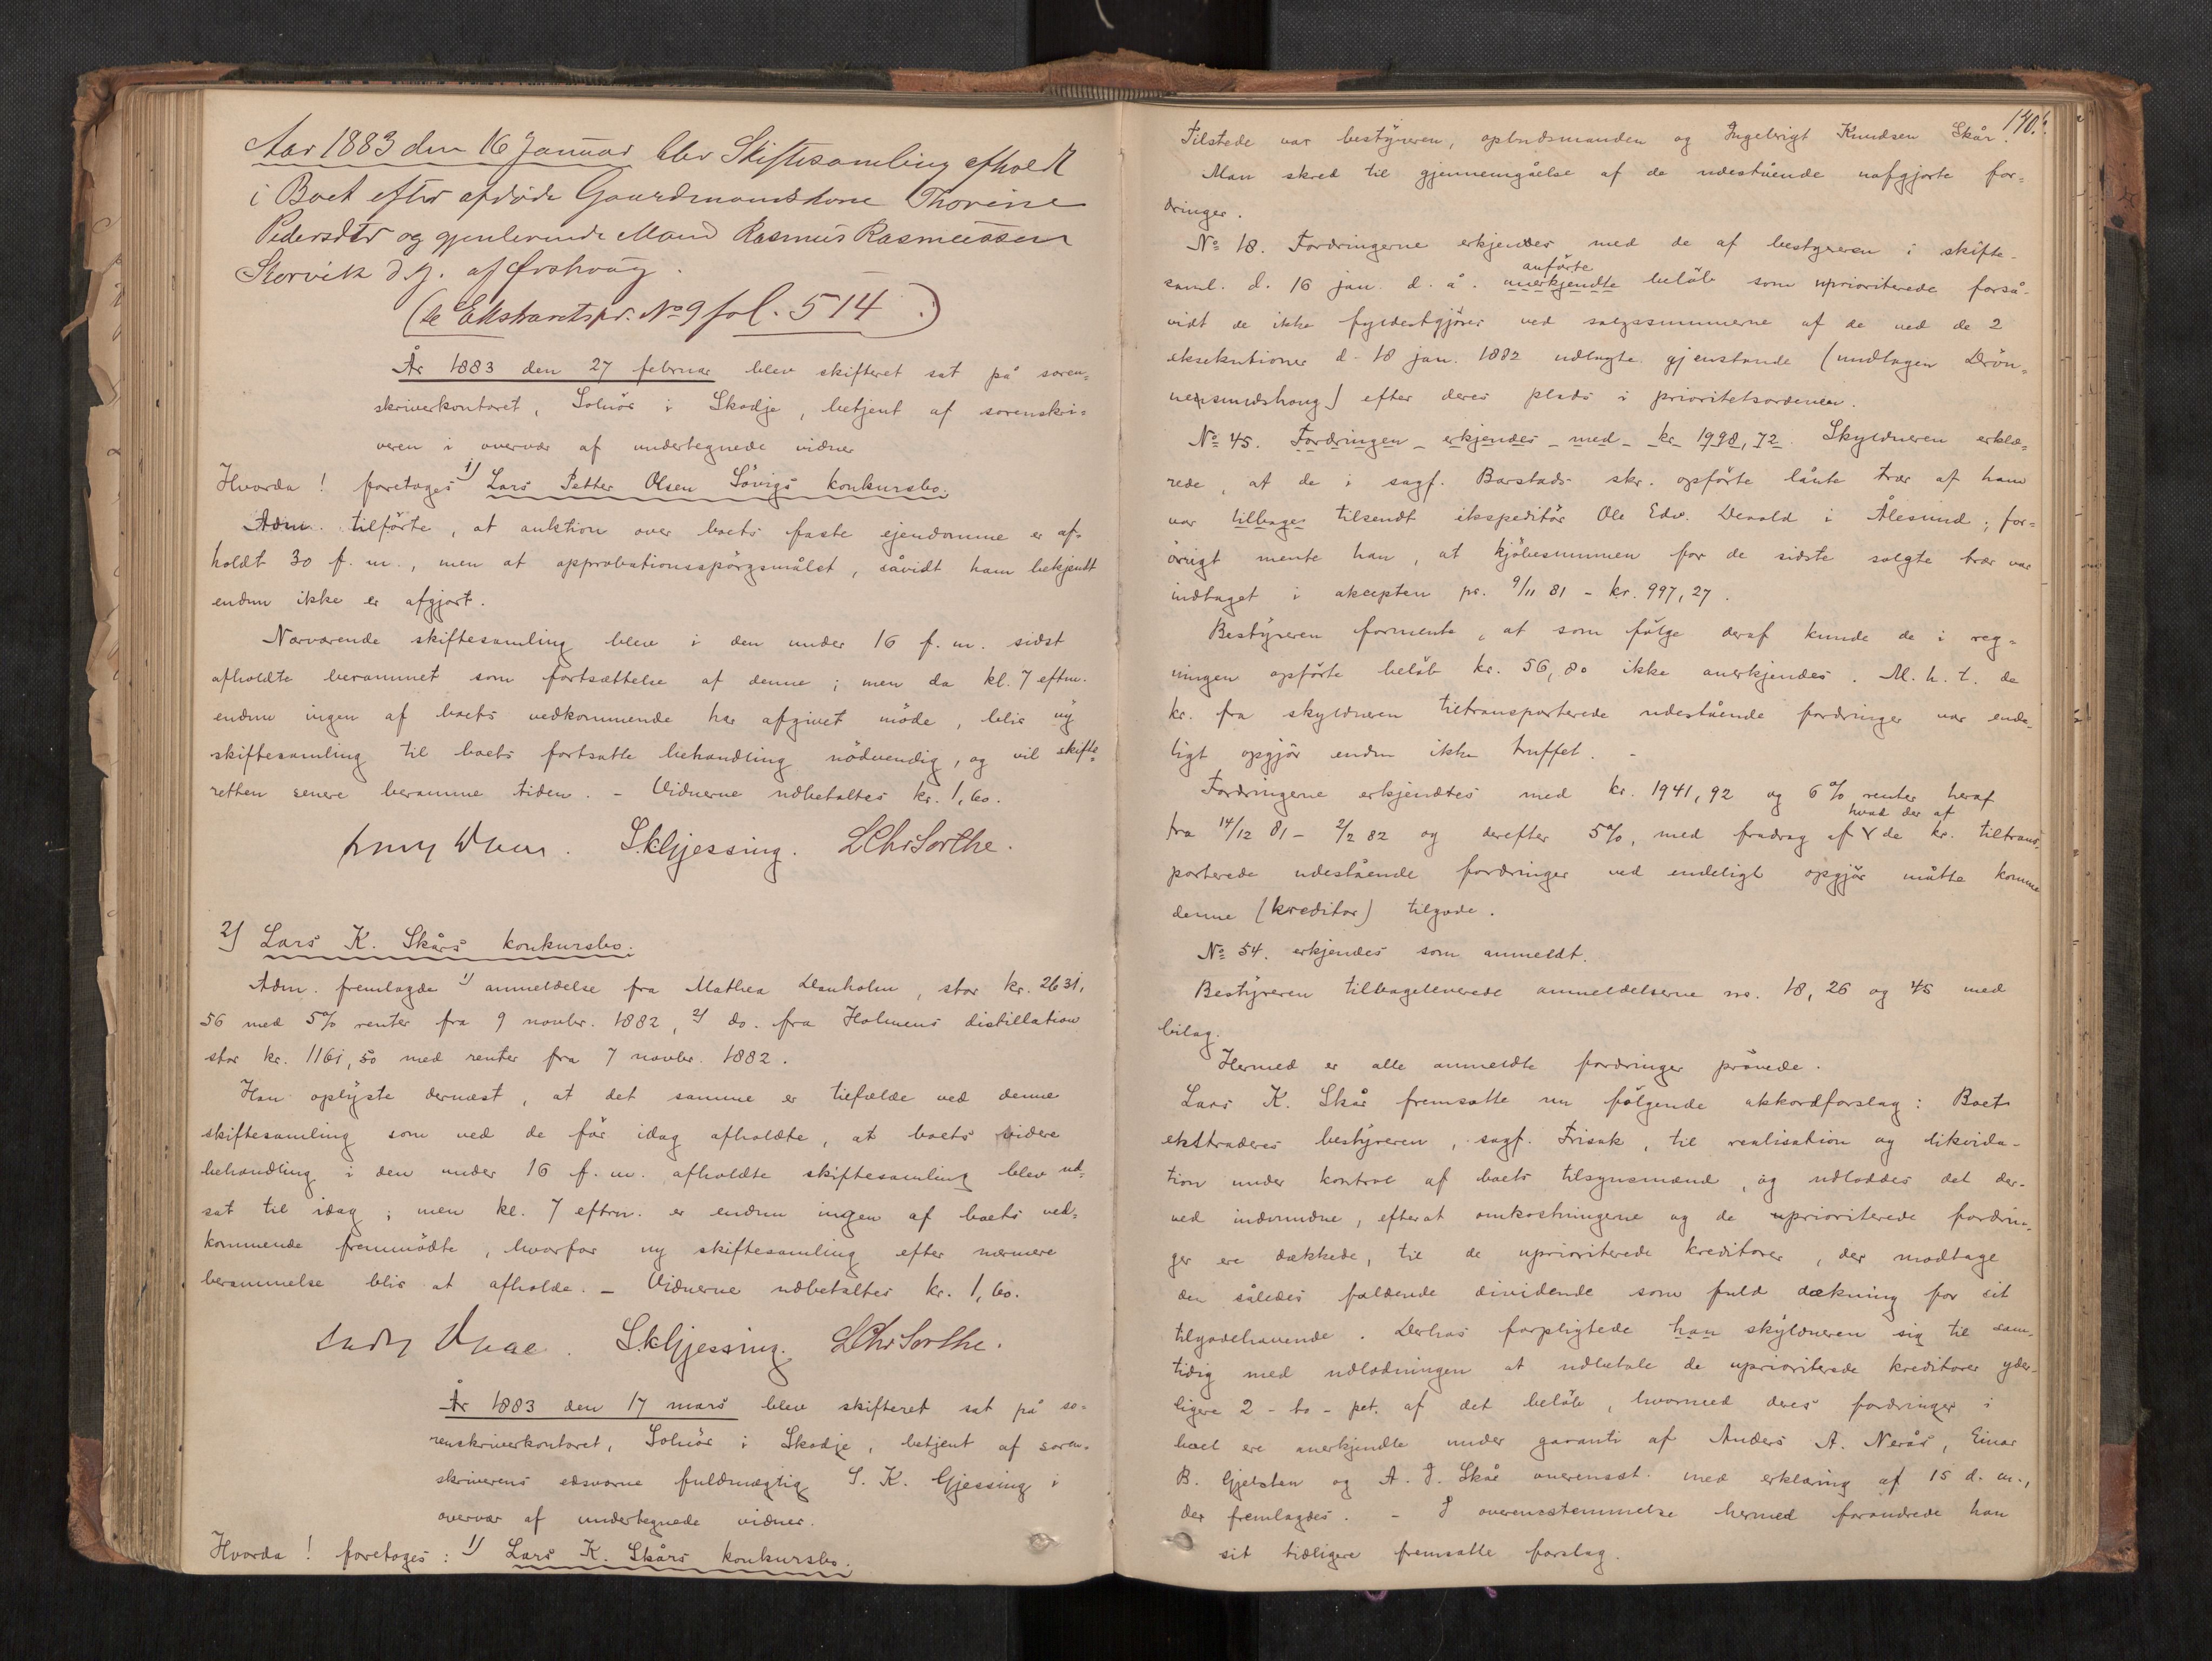 Aar 1883 den 16 Januar blev Skiftesamling afholdt
i Boet efter afdøde Gaardmandskone Thorine
Pedersdtr og gjenlevende Mand Rasmus Rasmussen
Storvik d.y. af
(se Ekstraretspr. No 9 fol. 514.)
År 1883 den 27 februar blev skifteret sat på soren=
skriverkontoret, Solnör i Skodje, betjent af sorenskri=
veren i overvær af undertegnede vidner
Hvorda! foretoges 1) Lars Petter Olsen Sövigs konkursbo.
Adm. tilförte, at auktion over boets faste ejendomme er af=
holdt 30 f. m., men at approbationsspörgsmålet, såvidt ham bekjendt
endnu ikke er afgjort.
Nærværende skiftesamling blev i den under 16 f. m. sidst
afholdte berammet som fortsættelse af denne; men da kl. 7 eftm.
endnu ingen af boets vedkommende har afgivet möde, blir ny
skiftesamling til boets fortsatte behandling nödvendig, og vil skifte=
retten senere beramme tiden. – Vidnerne udbetaltes kr. 1,60.
S.K.Gjessing. LChrSorthe.
2) Lars K. Skårs konkursbo.
Adm. fremlagde 1) anmeldelse fra Mathea Danholm, stor kr. 2631,
56 med 5% renter fra 9 novbr. 1882, 2) do. fra Holmens distillation
stor kr. 1161,50 med renter fra 7 novbr. 1882.
Han oplyste dernæst, at det samme er tilfælde ved denne
skiftesamling som ved de för idag afholdte, at boets videre
behandling i den under 16 f. m. afholdte skiftesamling blev ud=
sat til idag; men kl. 7 eftm. er endnu ingen af boets ved=
kommende fremmödte, hvorfor ny skiftesamling efter nærmere
berammelse blir at afholde. – Vidnerne udbetaltes kr. 1,60.
S.K.Gjessing. LChrSorthe.
År 1883 den 17 mars blev skifteret sat på so=
renskriverkontoret, Solnör i Skodje, betjent af soren=
skriverens edsvorne fuldmægtig S. K. Gjessing i
overvær af undertegnede vidner.
Hvorda! foretoges: 1) Lars K. Skårs konkursbo.
140.
Tilstede var bestyreren, opbudsmanden og Ingebrigt Knudsen Skår.
Man skred til gjennemgåelse af de udestående uafgjorte for=
dringer.
No 18. Fordringerne erkjendes med de af bestyreren i skifte-
saml. d. 16 jan. d. å. anerkjendte anförte belöb som uprioriterede forså-
vidt de ikke fyldestgjöres ved salgssummerne af de ved de 2
eksekutioner d. 18 jan. 1882 udlagte gjenstande (undtagen Drön=
nensundshaug) efter deres plads i prioritetsordenen.
No 45. Fordringen erkjendes med kr 1998,72. Skyldneren erklæ=
rede, at de i sagf. Barstads skr. opförte lånte trær af ham
var tilbages tilsendt ekspeditör Ole Edv. Devold i Ålesund; for=
övrigt mente han, at kjöbesummen for de sidste solgte trær var
indtaget i akcepten pr. 9/11 81 – kr. 997,27.
Bestyreren formente, at som fölge deraf kunde de i reg=
ningen opförte belöb kr. 56,80 ikke anerkjendes. M. h. t. de
kr. fra skyldneren tiltransporterede udestående fordringer var ende=
ligt opgjör endnu ikke truffet. –
Fordringerne erkjendtes med kr. 1941,92 og 6% renter heraf
fra 14/12 81 – 2/2 82 og derefter 5%, med fradrag af hvad der af de kr. tiltrans=
porterede udestående fordringer ved endeligt opgjör måtte komme
denne (kreditor) tilgode.
No 54. erkjendes som anmeldt.
Bestyreren tilbageleverede anmeldelserne no. 18, 26 og 45 med
bilag.
Hermed er alle anmeldte fordringer prövede.
Lars K. Skår fremsatte nu fölgende akkordforslag: Boet
ekstraderes bestyreren, sagf. Frisak, til realisation og likvida-
tion under kontrol af boets tilsynsmænd, og udloddes det der-
ved indvundne, efterat omkostningerne og de prioriterede fordrin=
ger ere dækkede, til de uprioriterede kreditorer, der modtage
den således faldende dividende som fuld dækning for sit
tilgodehavende. Derhos forpligtede han skyldneren sig til sam-
tidig med udlodningen at udbetale de uprioriterede kreditorer yder-
ligere 2 – to – pct. af det belöb, hvormed deres fordringer i
boet ere anerkjendte under garanti af Anders A. Nerås, Einar
B. Gjelsten og A. J. Skår overensst. med erklæring af 15 d. m.,
der fremlagdes. – I overensstemmelse hermed forandrede han
sit tidligere fremsatte forslag.